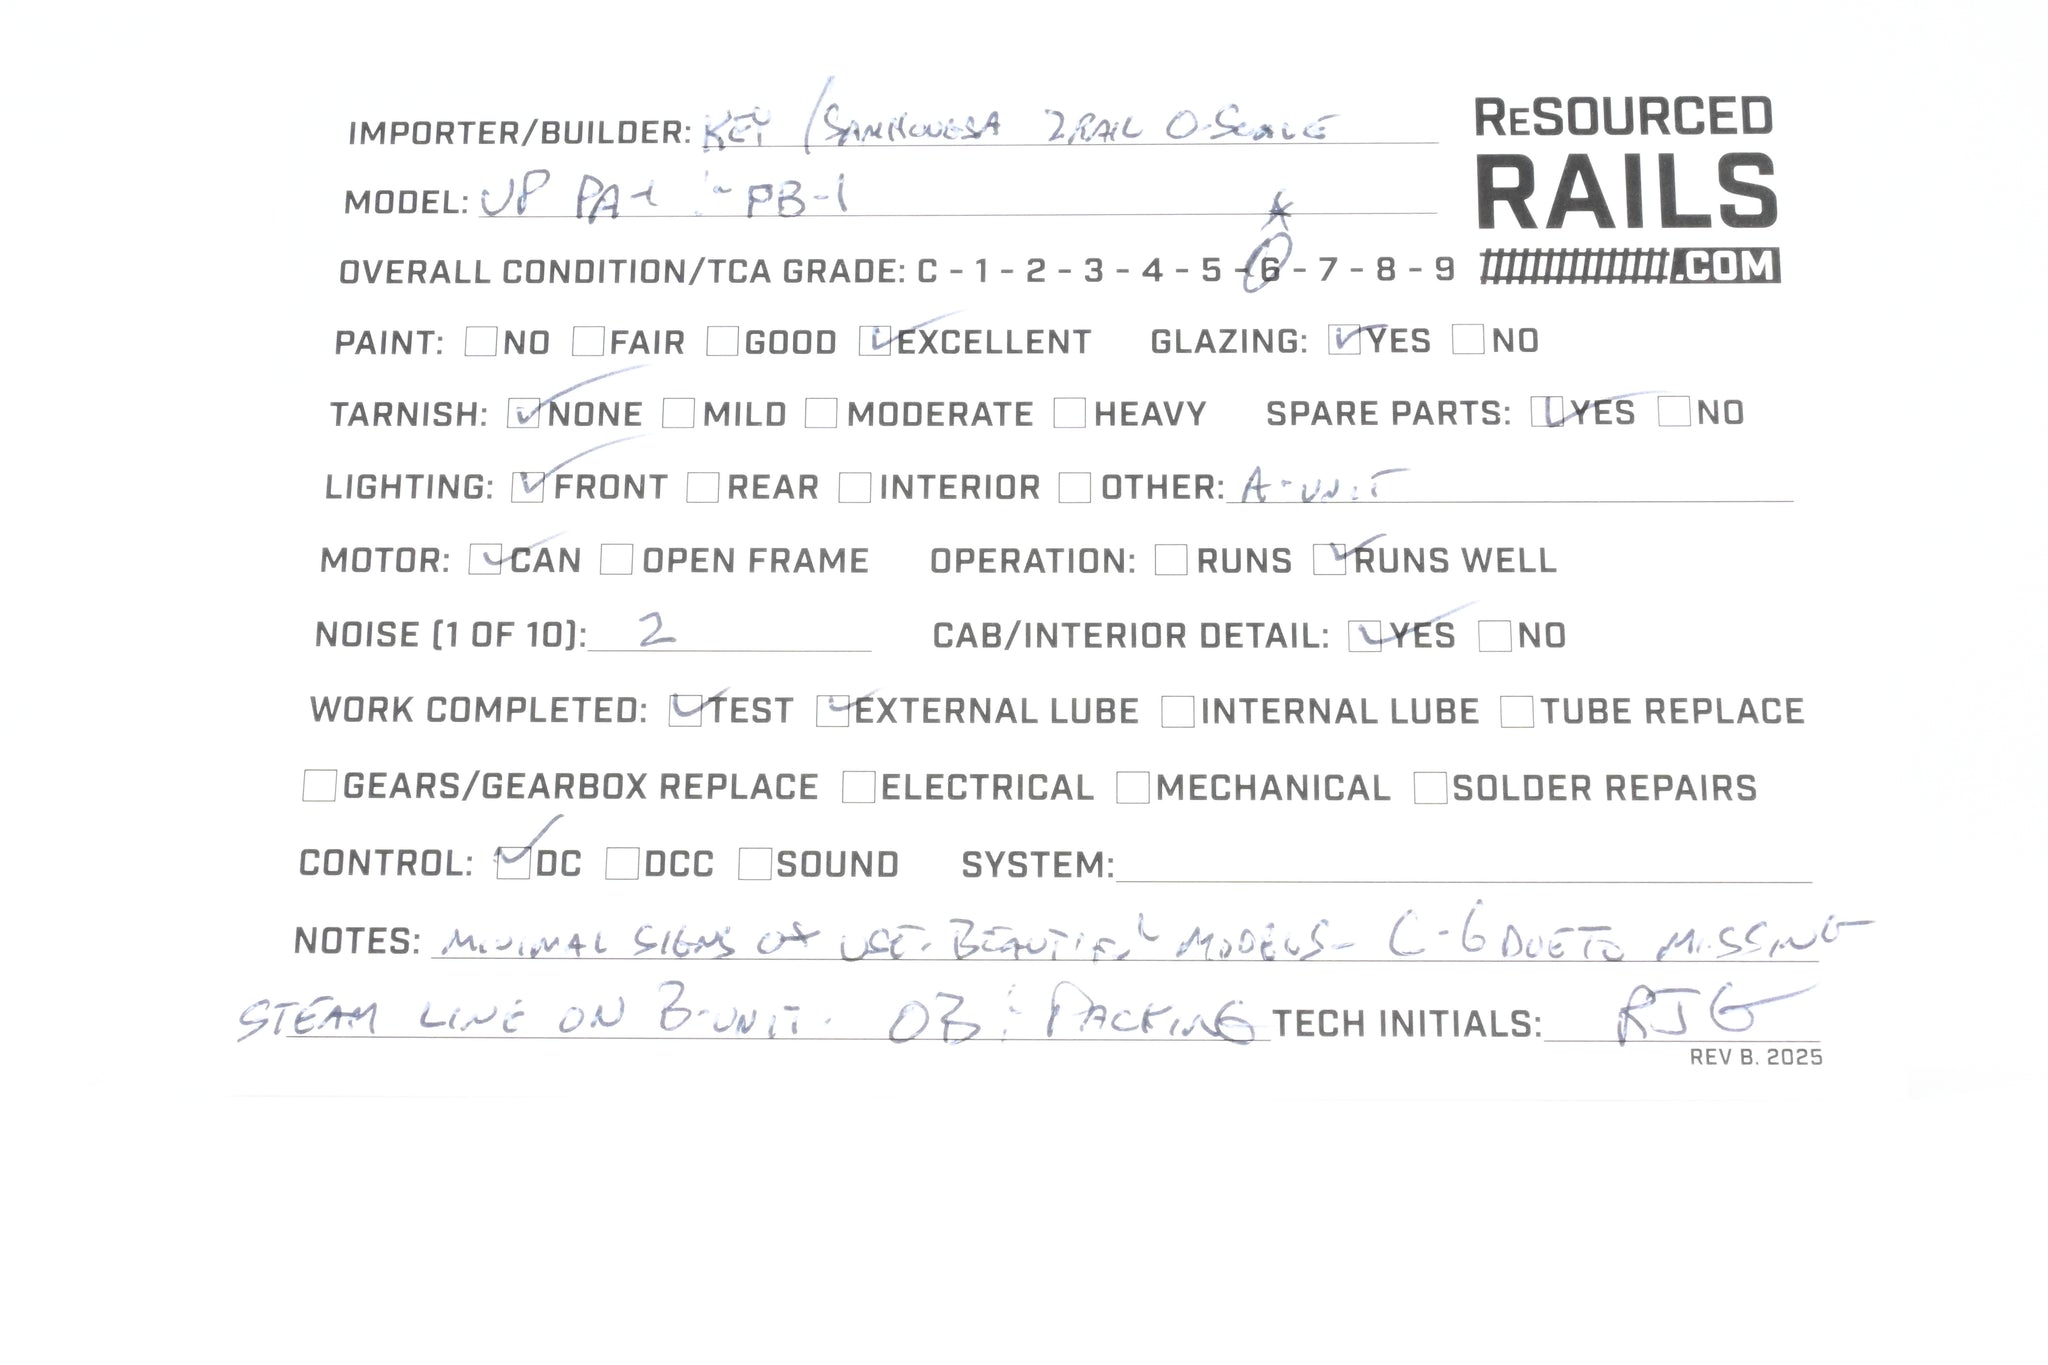 IMPORTER/BUILDER: KEY / SAMHONGSA 2RAIL O-SCALE
ReSOURCED
RAILS
.COM
MODEL: UP PA-1 PB-1
OVERALL CONDITION/TCA GRADE: C - 1 - 2 - 3 - 4 - 5 - 6 - 7 - 8 - 9
PAINT: NO FAIR GOOD EXCELLENT GLAZING: YES NO
TARNISH: NONE MILD MODERATE HEAVY SPARE PARTS: YES NO
LIGHTING: FRONT REAR INTERIOR OTHER: A-UNIT
MOTOR: CAN OPEN FRAME OPERATION: RUNS RUNS WELL
NOISE (1 OF 10): 2 CAB/INTERIOR DETAIL: YES NO
WORK COMPLETED: TEST EXTERNAL LUBE INTERNAL LUBE TUBE REPLACE
GEARS/GEARBOX REPLACE ELECTRICAL MECHANICAL SOLDER REPAIRS
CONTROL: DC DCC SOUND SYSTEM:
NOTES: MINIMAL SIGNS OF USE. BEAUTIFUL MODELS - C-6 DUE TO MISSING
STEAM LINE ON B-UNIT. OB & PACKING TECH INITIALS: RJG
REV B. 2025